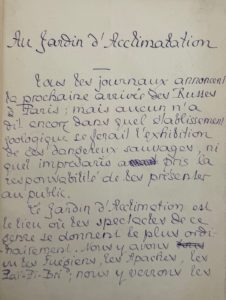 Au Jardin d'Acclimatation
Tous les journaux annoncent
la prochaine arrivée des Russes
à Paris ; mais aucun n'a
dit encore dans quel établissement
zoologique se ferait l'exhibition
de ces dangereux sauvages, ni
quel imprésario pris la
responsabilité de les présenter
au public.
Le Jardin d'Acclimation est
le lieu où les spectacles de ce
genre se donnent le plus ordi-
nairement. Nous y avons
vu les Fuégiens, les Apaches, les
nous y verrons les